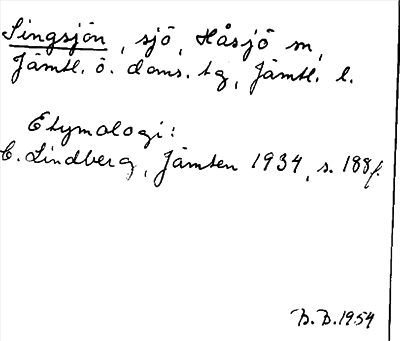 Singsjön, sjö, Håsjö sn,
Jämtl. ö. doms. tg, Jämtl. l.
Etymologi:
C. Lindberg, Jämten 1934, s. 188 f.
B.B. 1954